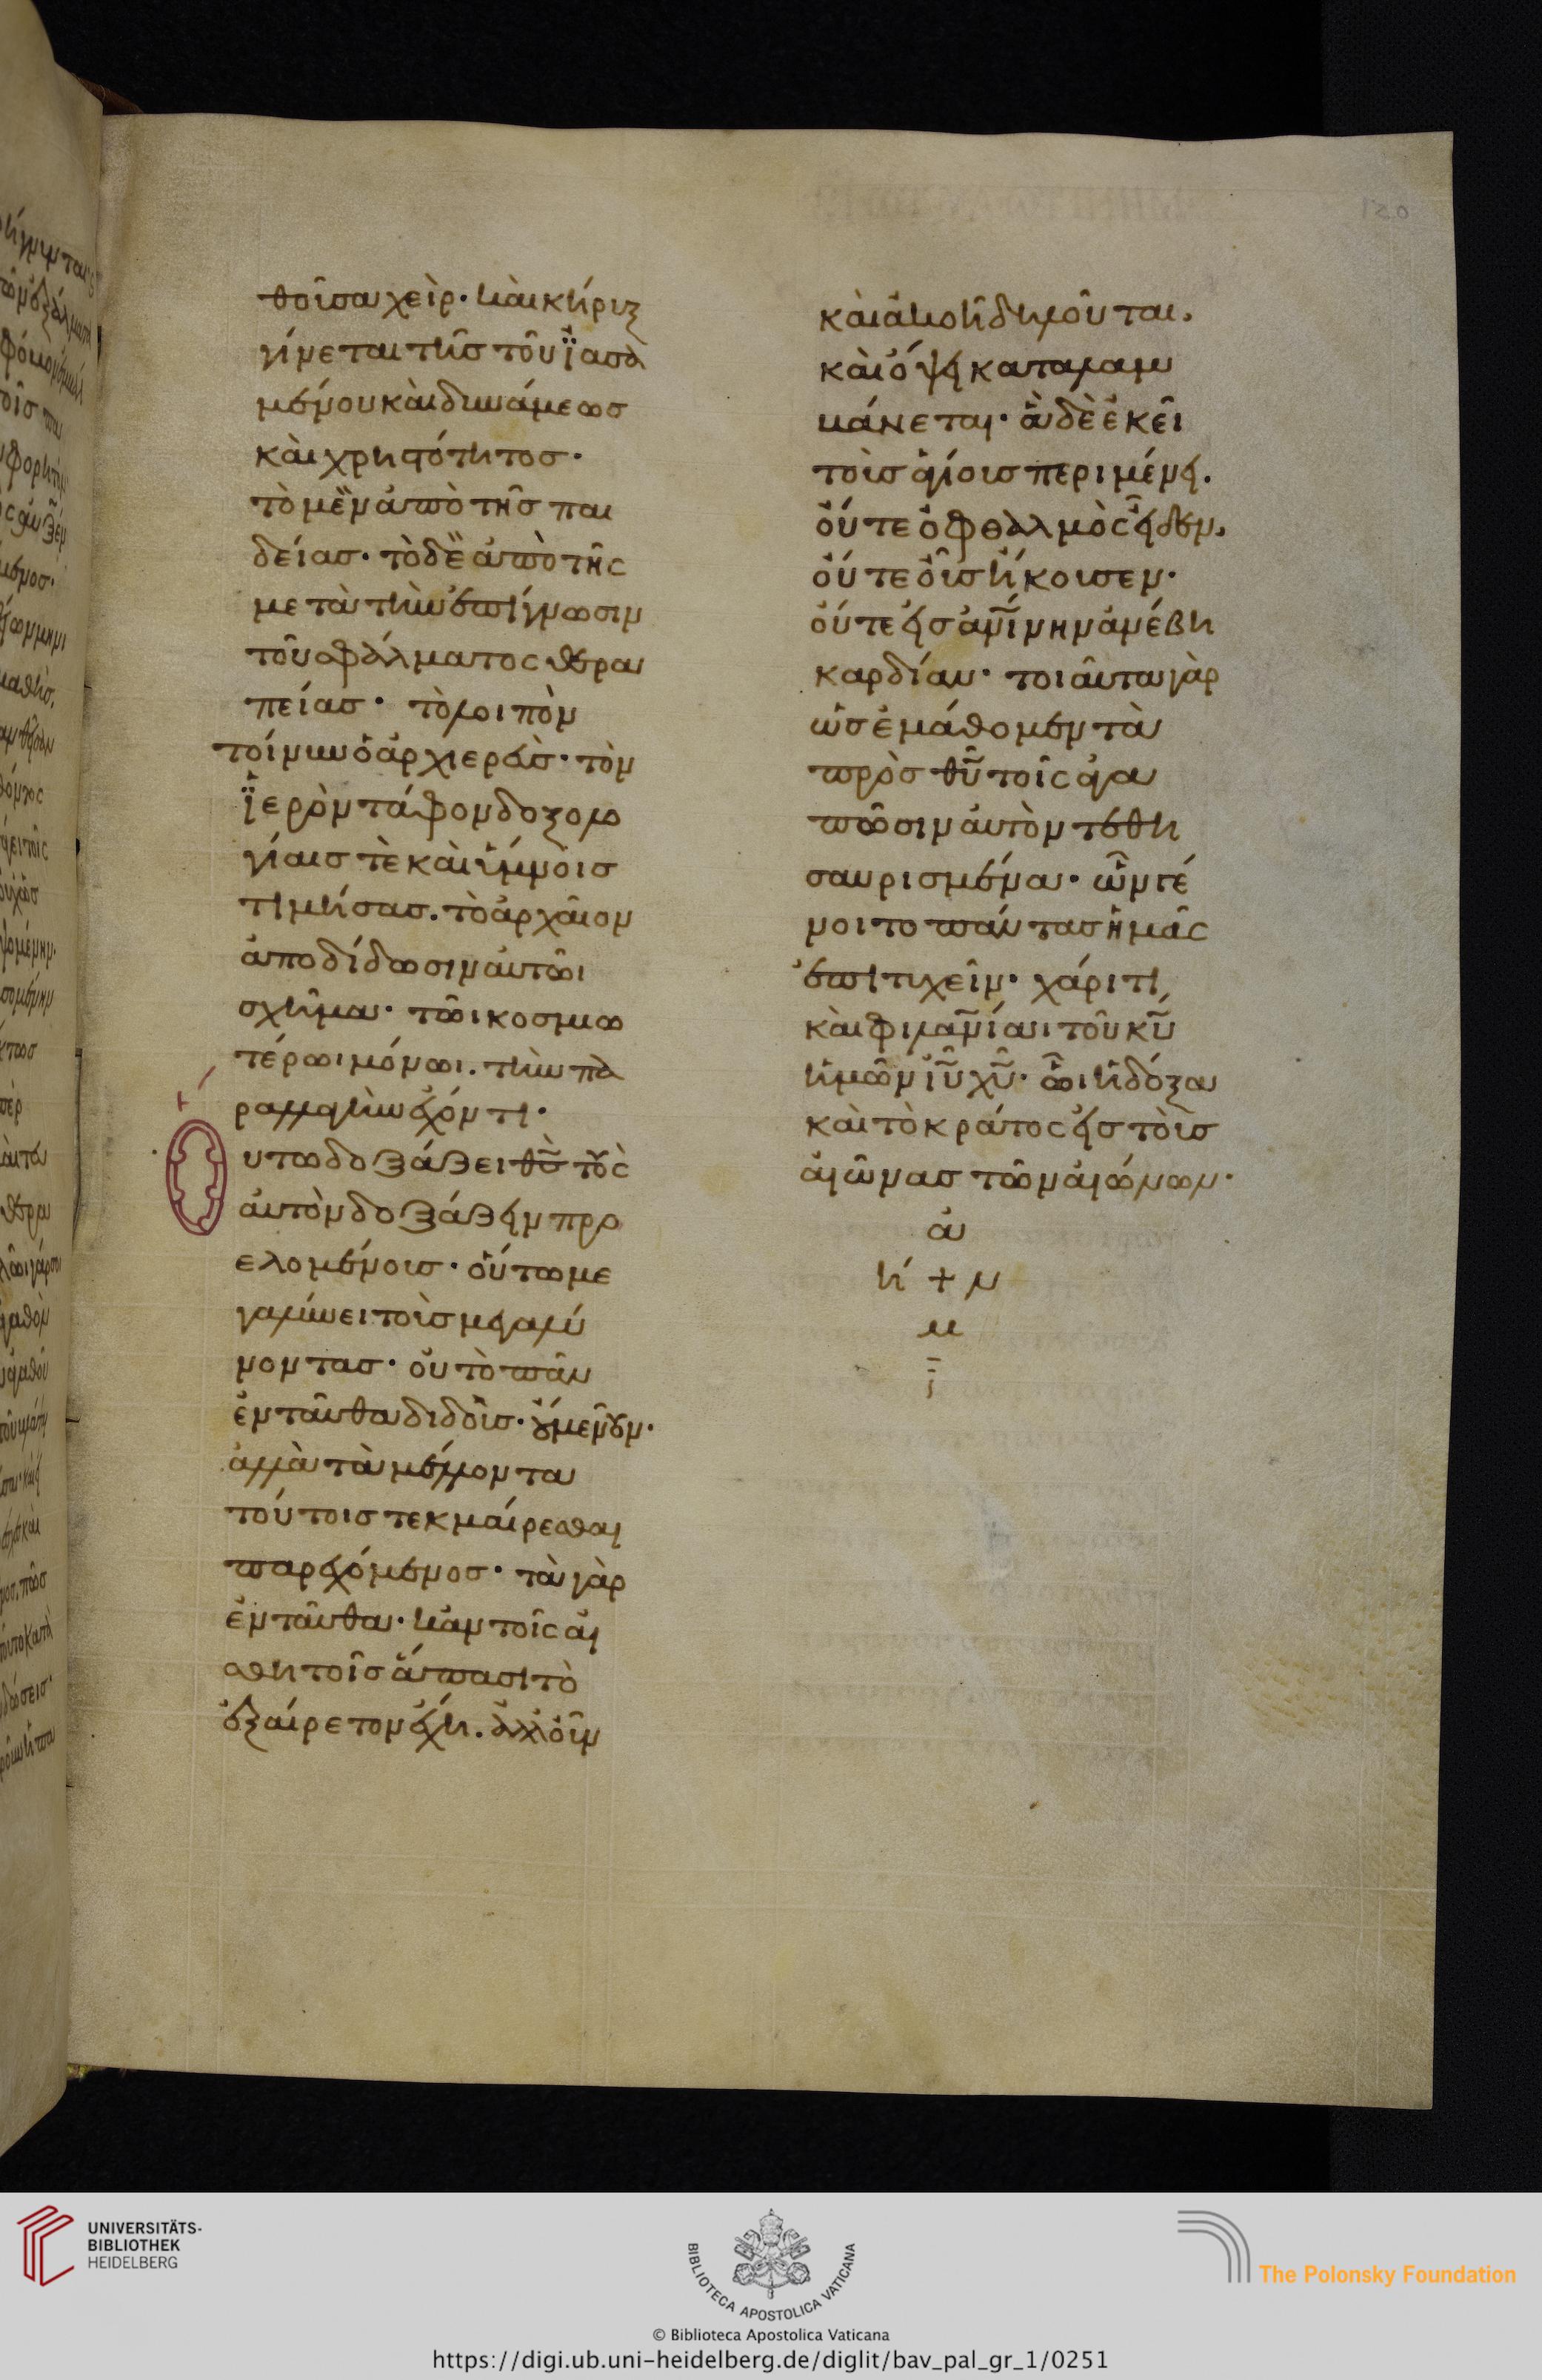 θοῦσα χεὶρ· καὶ κήρυξ
γίνεται τῆς τοῦ ἰασα
μένου καὶ δυνάμεως
καὶ χρηστότητος·
τὸ μὲν ἀπὸ τῆς παι
δείας· τὸ δὲ ἀπὸ τῆς
μετὰ τὴν ἐπίγνωσιν
τοῦ σφάλματος θερα
πείας· τὸ λοιπὸν
τοίνυν ὁ ἀρχιερεὺς· τὸν
ἱερὸν τάφον δοξολο
γίαις τὲ καὶ ὕμνοις
τιμήσας. τὸ ἀρχαῖον
ἀποδίδωσιν αὐτῶι
σχῆμα· τῶι κοσμιω
τέρωι μόνωι. τὴν πα
ραλλαγὴν ἔχοντι·
Ουτω δοξάζει θ̅ς̅ τοὺς
αὐτὸν δοξάζειν προ
ελομένους· οὕτω με
γαλύνει τοὺς μεγαλύ
νοντας· οὐ τὸ πᾶν
ἐνταῦθα διδοὺς· οὔμενουν·
ἀλλὰ τὰ μέλλοντα
τούτοις τεκμαίρεσθαι
παρεχόμενος· τὰ γὰρ
ἐνταῦθα· κἂν τοῖς αἰ
σθητοῖς ἅπασι τὸ
ἐξαίρετον ἔχη. ἀλλ' οὖν
καὶ ἀκοῆ δηλοῦται.
καὶ ὄψει καταλαμ
βάνεται· ἃ δὲ ἐκεῖ
τοὺς ἁγίους περιμένει.
οὔτε ὀφθαλμὸς εἶδεν.
οὔτε οὖς ἤκουσεν·
οὔτε εἰς ἀ̅ν̅ίνην ἀνέβη
καρδίαν· τοιαῦτα γὰρ
ὡς ἐμάθομεν τὰ
πρὸς θ̅υ̅ τοῖς ἀγα
πῶσιν αὐτὸν τεθη
σαυρισμένα· ὧν γέ
νοιτο πάντας ἡμᾶς
ἐπιτυχεῖν· χάριτι
καὶ φιλα̅ν̅ίαι τοῦ κ̅υ̅
ἡμῶν ι̅υ̅ χ̅υ̅· ὧι ἡ δόξα
καὶ τὸ κράτος εἰς τοὺς
αἰῶνας τῶν αἰώνων·
ἀ
ή + ν
μ
UNIVERSITÄTS-
BIBLIOTHEK
HEIDELBERG
BIBLIOTECA APOSTOLICA VATICANA
The Polonsky Foundation
© Biblioteca Apostolica Vaticana
https://digi.ub.uni-heidelberg.de/diglit/bav_pal_gr_1/0251